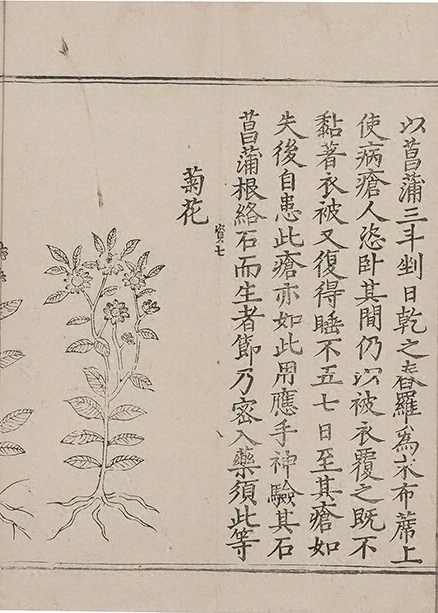 以菖蒲三斗剉日乾之舂羅為末布蓆上
使病瘡人恣卧其間仍以被衣覆之既不
黏著衣被又復得睡不五七日至其瘡如
失後自患此瘡亦如此用應手神驗其石
菖蒲根絡石而生者節乃密入藥須此等
菊花